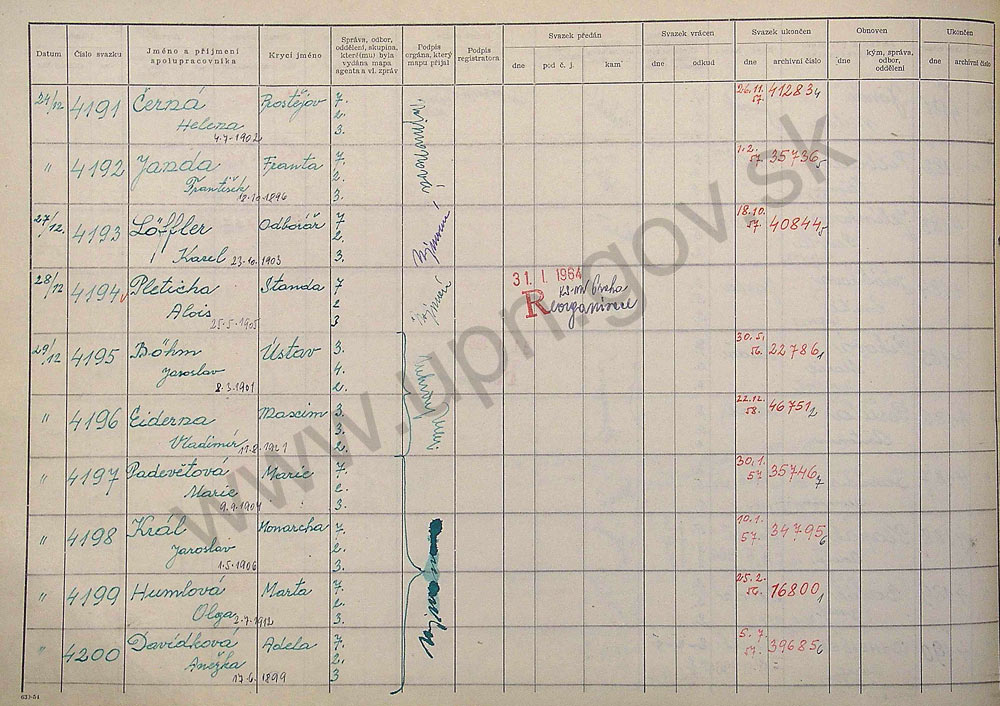 Datum
Číslo svazku
Jméno a příjmení spolupracovníka
Krycí jméno
Správa, odbor, oddělení, skupina, které(mu) byla vydána mapa agenta a vl. zpráv
Podpis orgána, který mapu přijal
Podpis registratora
Svazek předán
dne
pod č. j.
kam
Svazek vrácen
dne
odkud
Svazek ukončen
dne
archivní číslo
Obnoven
dne
kým, správa, odbor, oddělení
Ukončen
dne
archivní číslo
24/12 4191 Černá Prostějov 7. 26.11. 57. 41283 4
Helena 2.
4.7.1902 3.
" 4192 Janda Franta 7. 1.2. 57. 35736 5
František 2.
18.10.1896 3.
27/12. 4193 Löffler Odborář 7 18.10. 57. 40844 5
Karel 2.
23.10.1903 3.
28/12 4194 Pleticha Standa 7 31. I. 1964
Alois 2 Praha
25.5.1905 3 Reorganisace
29/12 4195 Böhm Ústav 3. 30.5. 56. 22786 1
Jaroslav 4.
8.3.1901 2.
" 4196 Eiderna Maxcim 3. 22.12. 58. 46751 2
Vladimír 3.
11.8.1921 2.
" 4197 Padevětová Marie 7. 30.1. 57 35746 7
Marie 2.
9.9.1904 3.
" 4198 Král Monarcha 7. 10.1. 57. 34795 6
Jaroslav 2.
1.5.1906 3.
" 4199 Humlová Marta 7. 25.2. 56. 16800 1
Olga 2.
2.7.1912 3.
" 4200 Davídková Adela 7. 5.7. 57. 39685 6
Anežka 2.
17.6.1899 3
www.upn.gov.sk